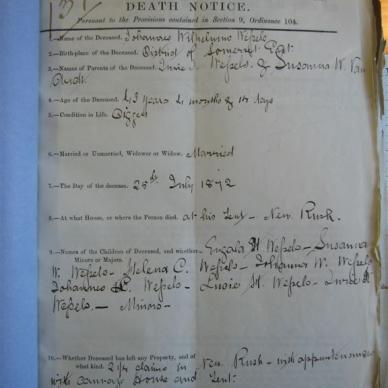 DEATH NOTICE.
Pursuant to the Provisions contained in Section 9, Ordinance 104.
1.—Name of the Deceased. Johannes Wilhelmus Wessels
2.—Birth-place of the Deceased. District of Somerset East
3.—Names of Parents of the Deceased. Wessels & Susanna W. Van
4.—Age of the Deceased. 43 Years 4 months & days
5.—Condition in Life. Digger
6.—Married or Unmarried, Widower or Widow. Married
7.—The Day of the decease. 28th July 1872
8.—At what House, or where the Person died. at his Tent — New Rush.
9.—Names of the Children of Deceased, and whether Minors or Majors. Wessels — Susanna
W. Wessels — Helena C. Wessels — Johanna W. Wessels
Johannes Wessels — M. Wessels —
Wessels — Minors —
10.—Whether Deceased has left any Property, and of what kind. 2 1/4 claims in New Rush — with appurtenances
with House and Tent.